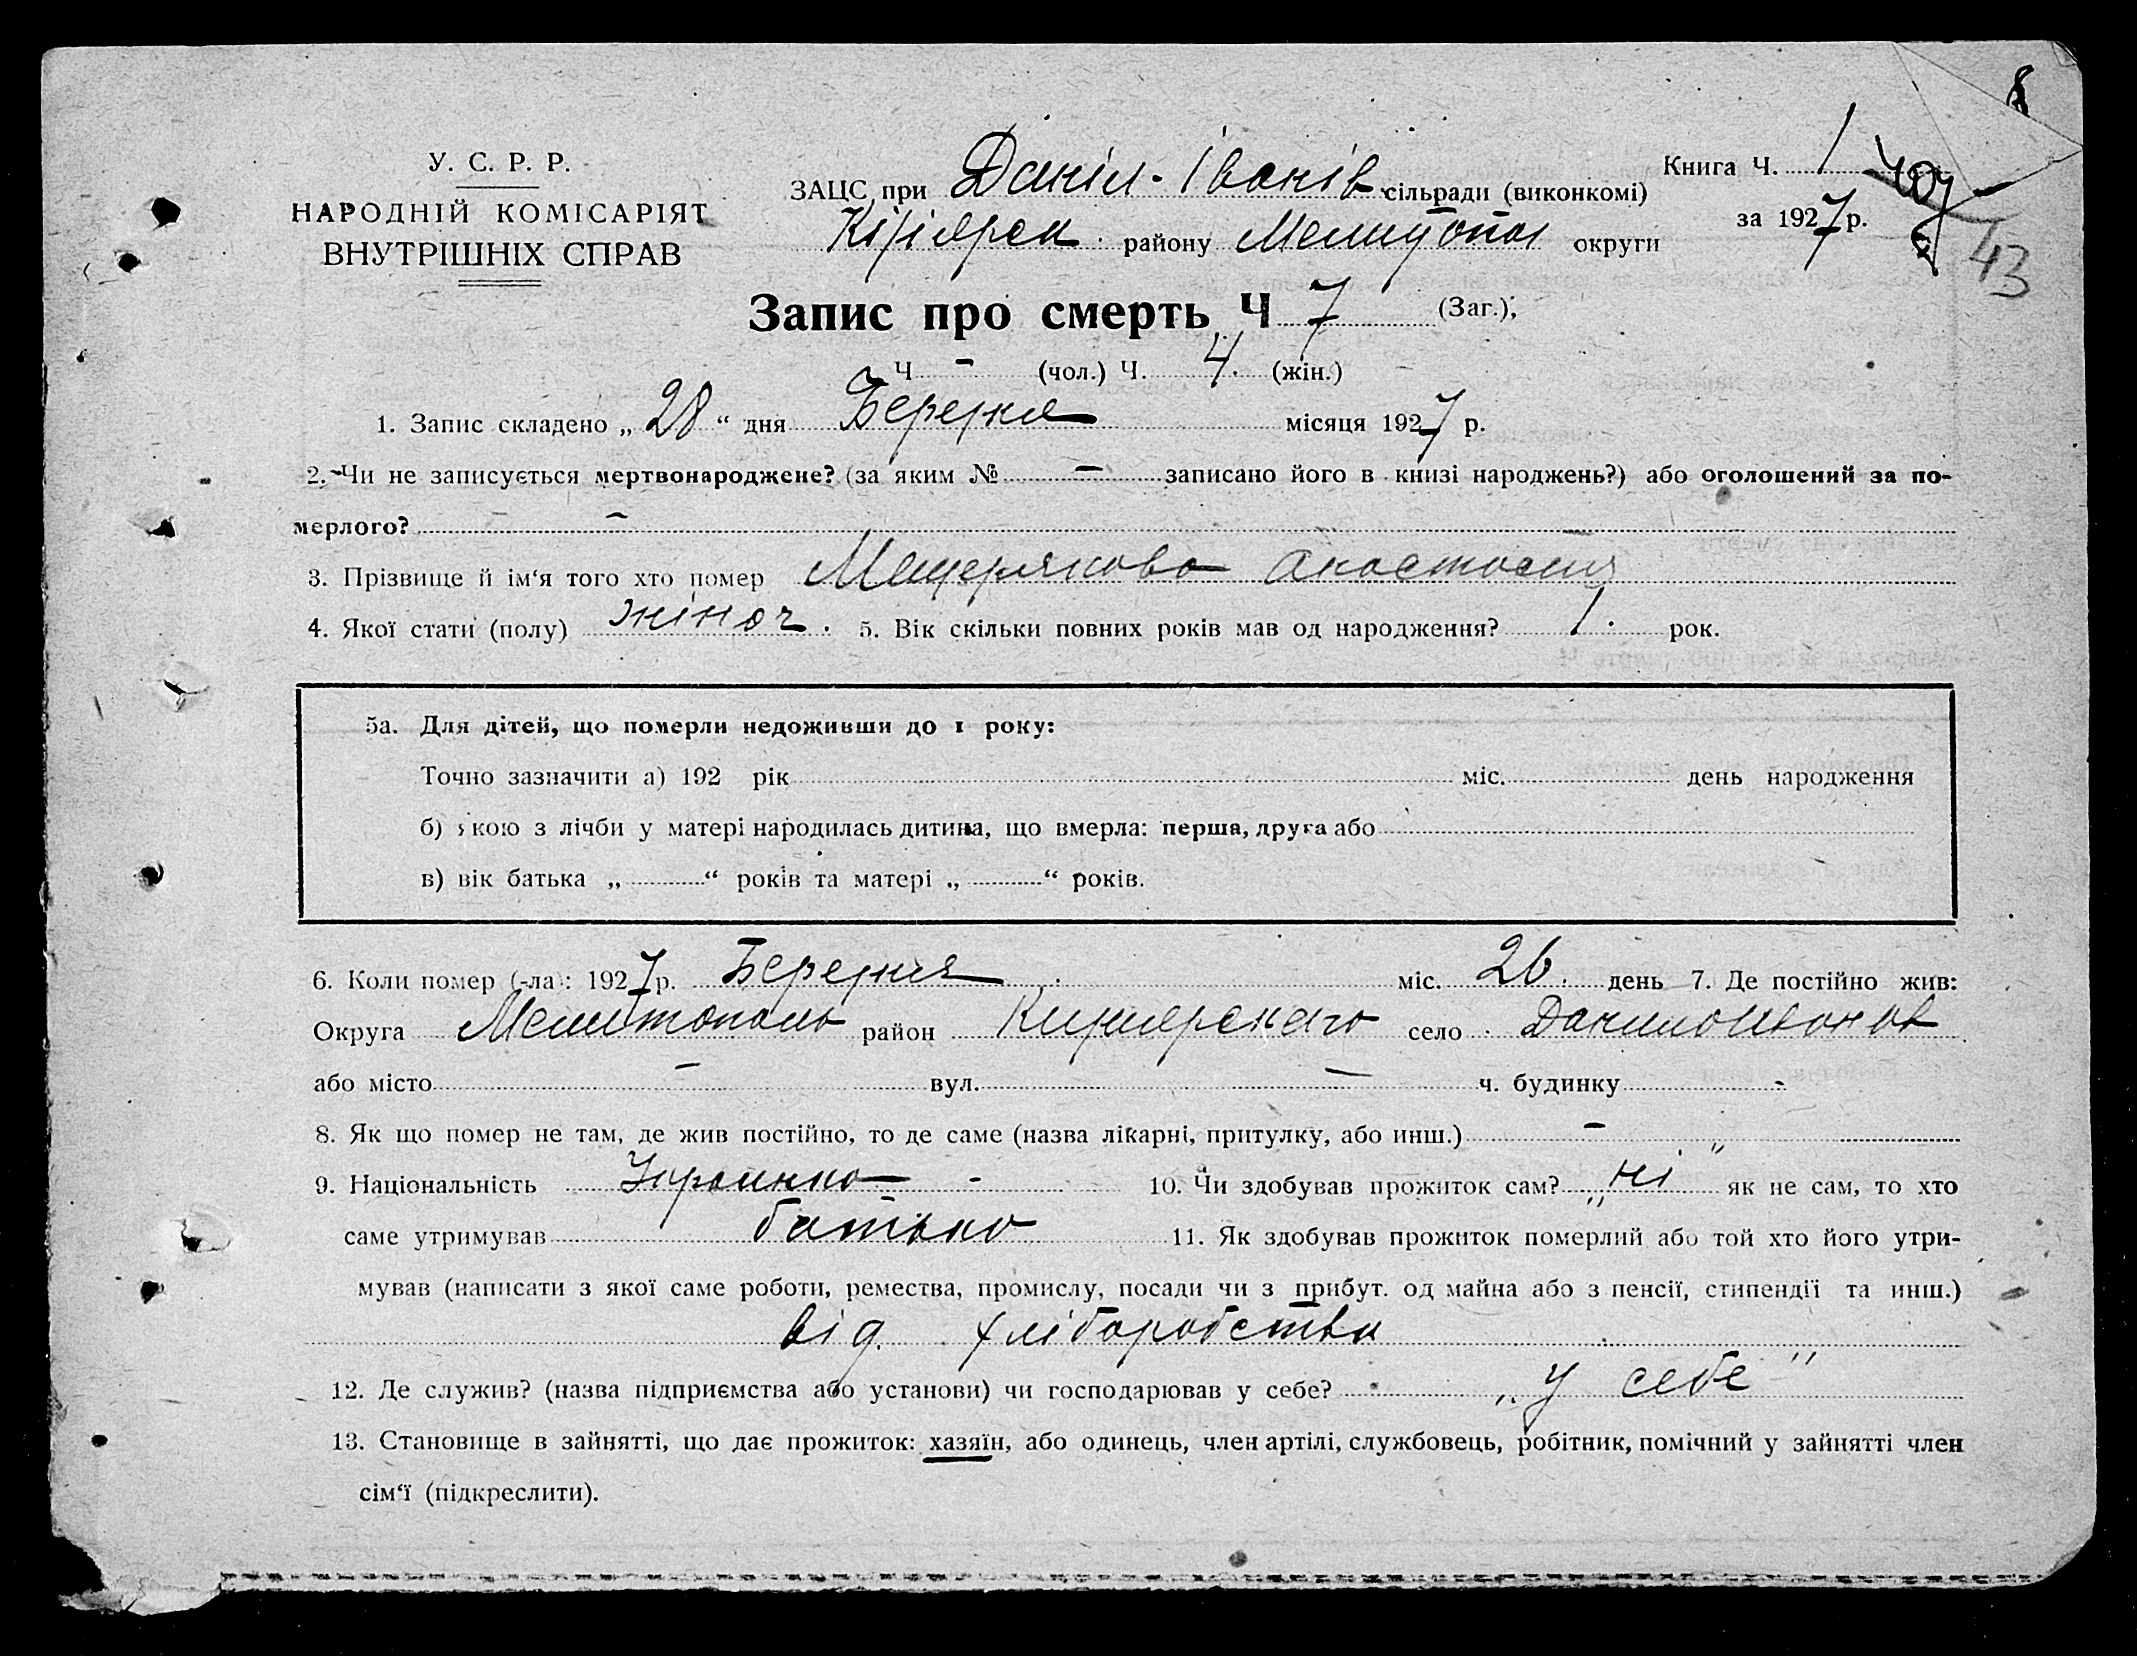 8
У. С. Р. Р.
НАРОДНІЙ КОМІСАРІЯТ
ВНУТРІШНІХ СПРАВ
ЗАЦС при Даніл-Іванів сільради (виконкомі)
Кізіярск району Мелитопол округи
Книга Ч. 1
за 1927 р.
43
Запис про смерть Ч 7 (Заг.);
Ч - (чол.) Ч. 4 (жін.)
1. Запис складено „ 28 “ дня Березня місяця 1927 р.
2. Чи не записується мертвонароджене? (за яким № — записано його в книзі народжень?) або оголошений за по-
мерлого? —
3. Прізвище й ім‘я того хто помер Мещерякова Анастасия
4. Якої стати (полу) жіноч. 5. Вік скільки повних років мав од народження? 1. рок.
5а. Для дітей, що померли недоживши до 1 року:
Точно зазначити а) 192 рік міс. день народження
б) якою з лічби у матері народилась дитина, що вмерла: перша, друга або
в) вік батька „ “ років та матері „ “ років.
6. Коли помер (-ла): 1927 р. Березня міс. 26. день 7. Де постійно жив:
Округа Мелитополь район Кизиярского село Данило Иванов
або місто — вул. — ч. будинку -
8. Як що помер не там, де жив постійно, то де саме (назва лікарні, притулку, або инш.) —
9. Національність Украинка - 10. Чи здобував прожиток сам? „ні“ як не сам, то хто
саме утримував батько 11. Як здобував прожиток померлий або той хто його утри-
мував (написати з якої саме роботи, ремества, промислу, посади чи з прибут. од майна або з пенсії, стипендії та инш.)
від хліборобства
12. Де служив? (назва підприємства або установи) чи господарював у себе? „у себе“
13. Становище в зайнятті, що дає прожиток: хазяїн, або одинець, член артілі, службовець, робітник, помічний у зайнятті член
сім‘ї (підкреслити).